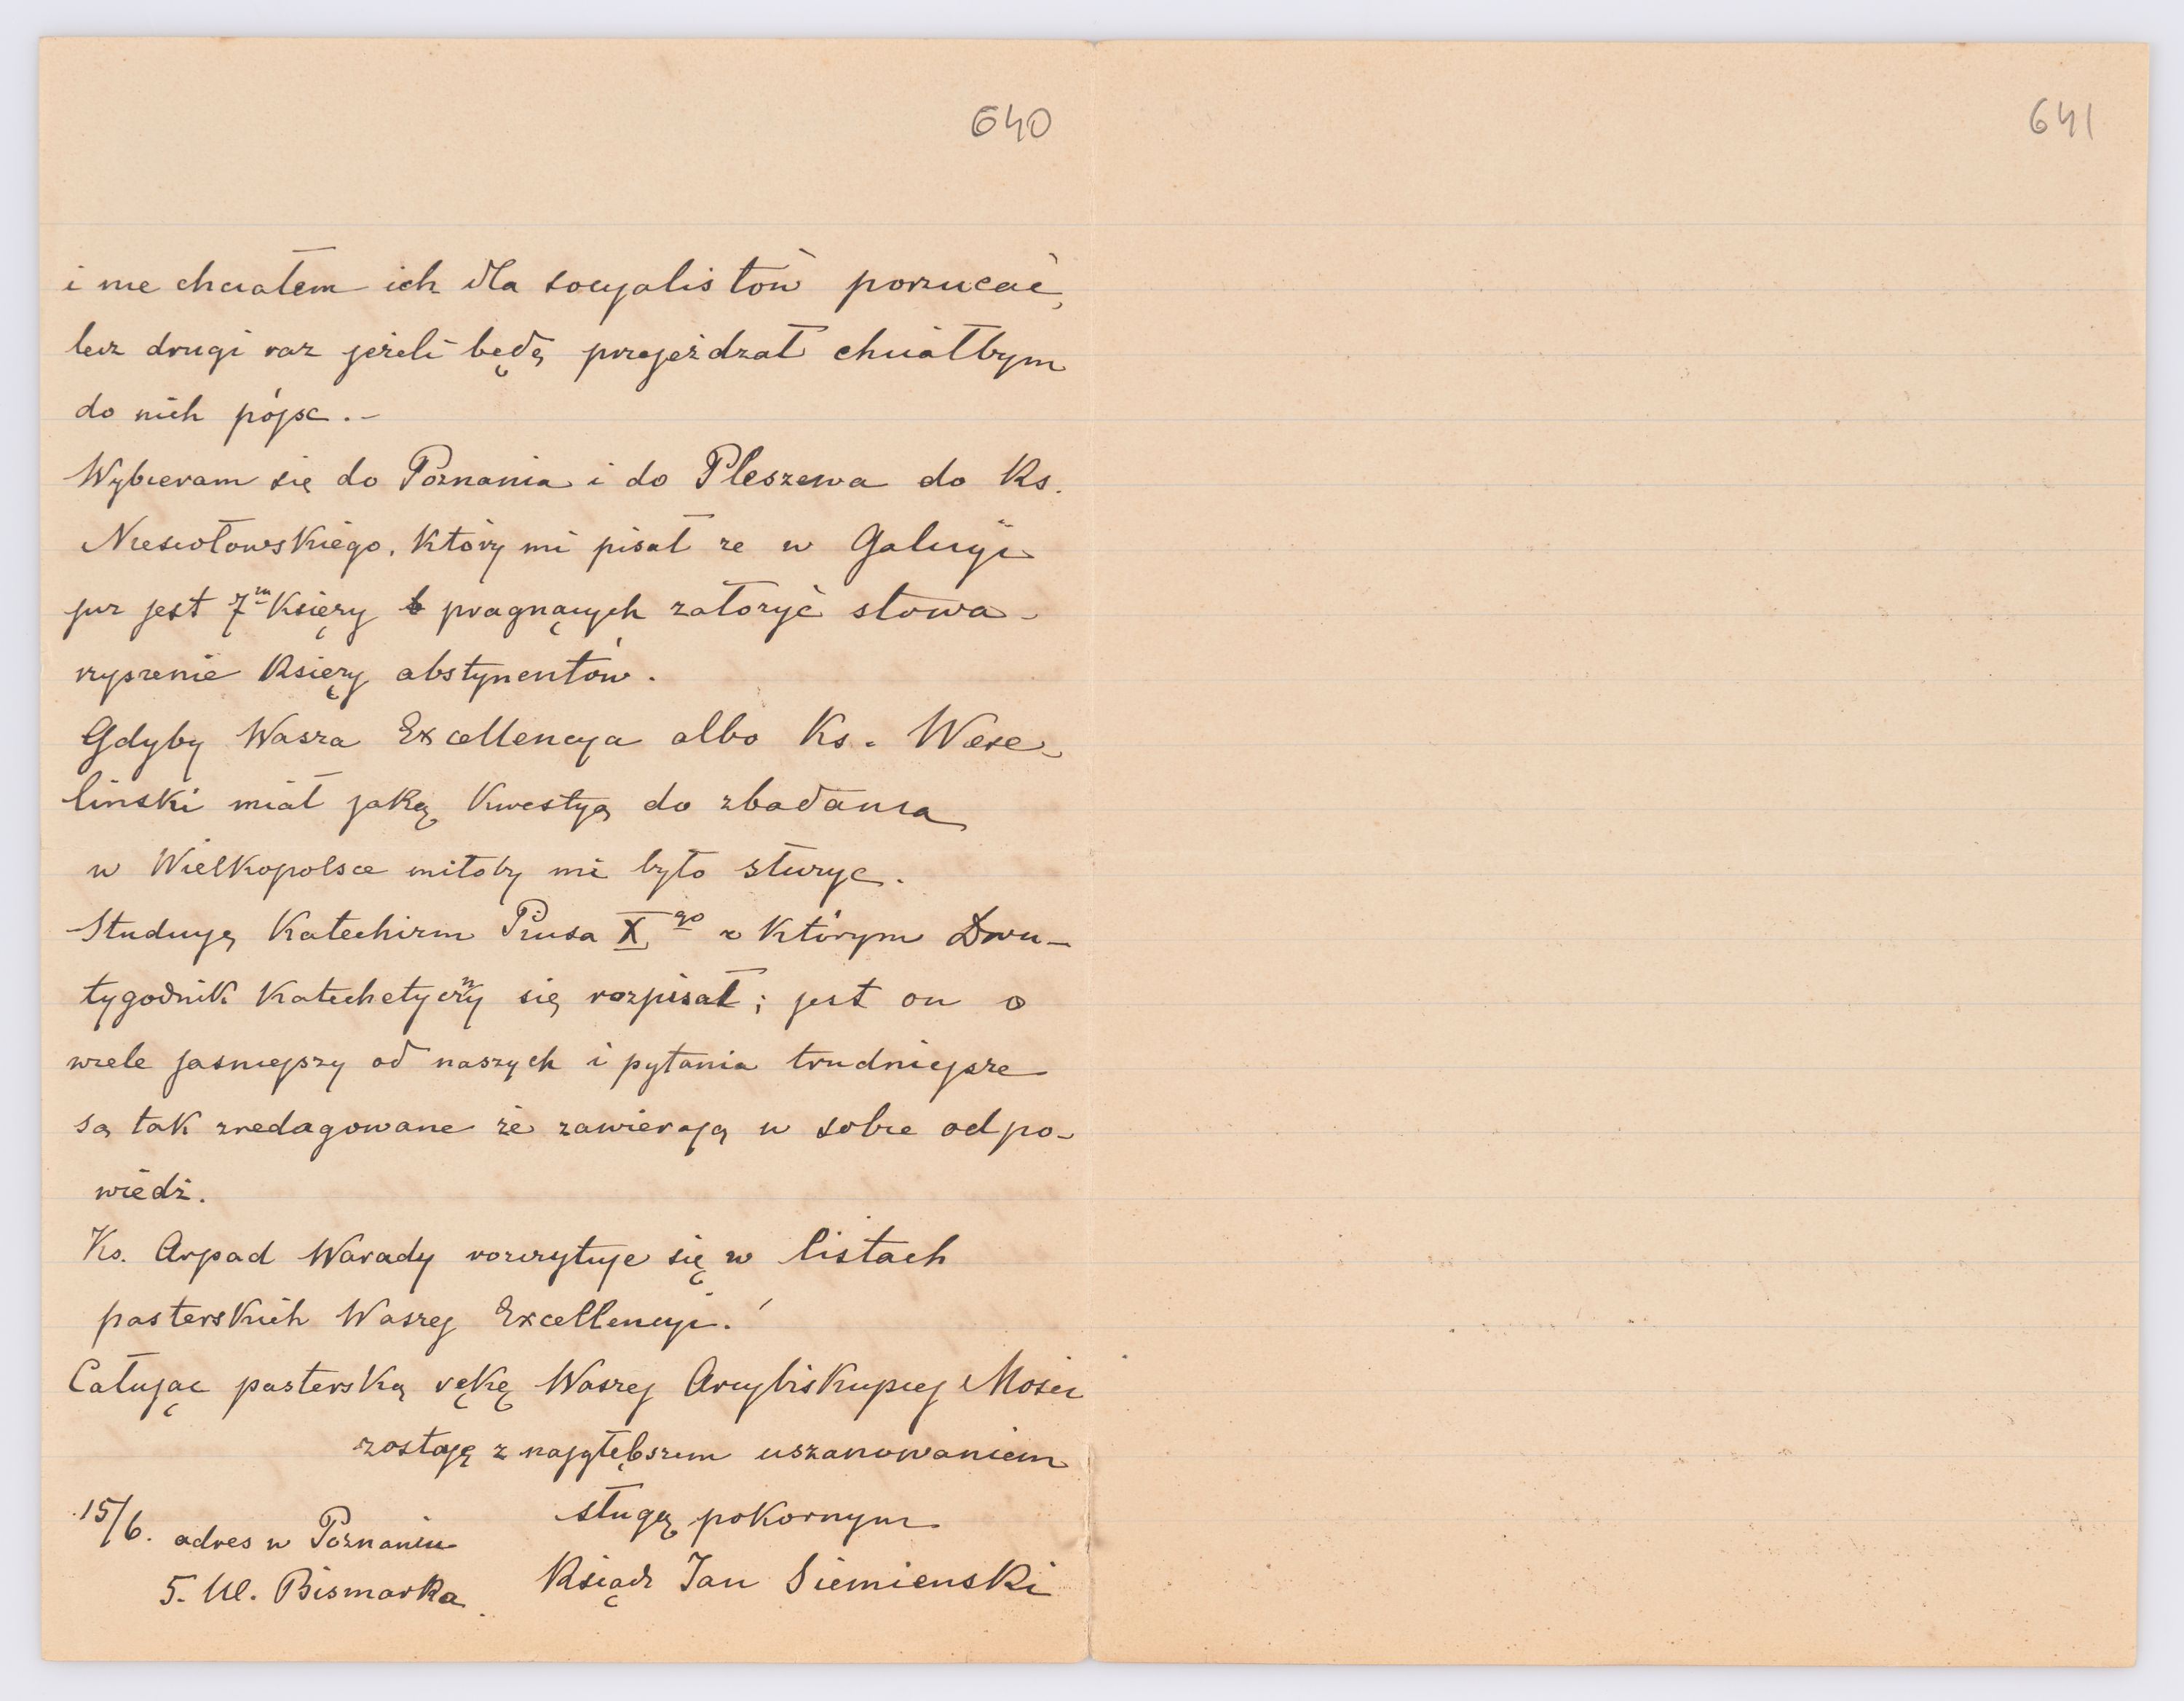 640
i nie chciałem ich dla socyalistów porzucać,
lecz drugi raz jeżeli będę przejeżdzał chciałbym
do nich pójsc.-
Wybieram się do Poznania i do Pleszewa do Ks.
Niesiołowskiego, który mi pisał ze w Galicyi
juz jest 7m Księzy pragnących załozyć stowa-
rzyszenie Księzy abstynentów.
Gdyby Wasza Excellencya albo Ks. Wese-
linski miał jaką Kwestyą do zbadania
w Wielkopolsce miłoby mi było słuzyc.
Studuyę Katechizm Piusa X go o którym Dwu-
tygodnik Katechetyczny się rozpisał; jest on o
wiele jasniejszy od naszych i pytania trudniejsze
są tak zredagowane że zawierają w sobie odpo-
wiedź.
Ks. Arpad Warady rozczytuje się w listach
pasterskich Waszej Excellencyi!
Całując pasterską rękę Waszej Arcybiskupiej Mosci
zostaję z najgłębszem uszanowaniem
sługą pokornym
Ksiądz Jan Siemienski
15/6. adres w Poznaniu
5. Ul. Bismarka.
641